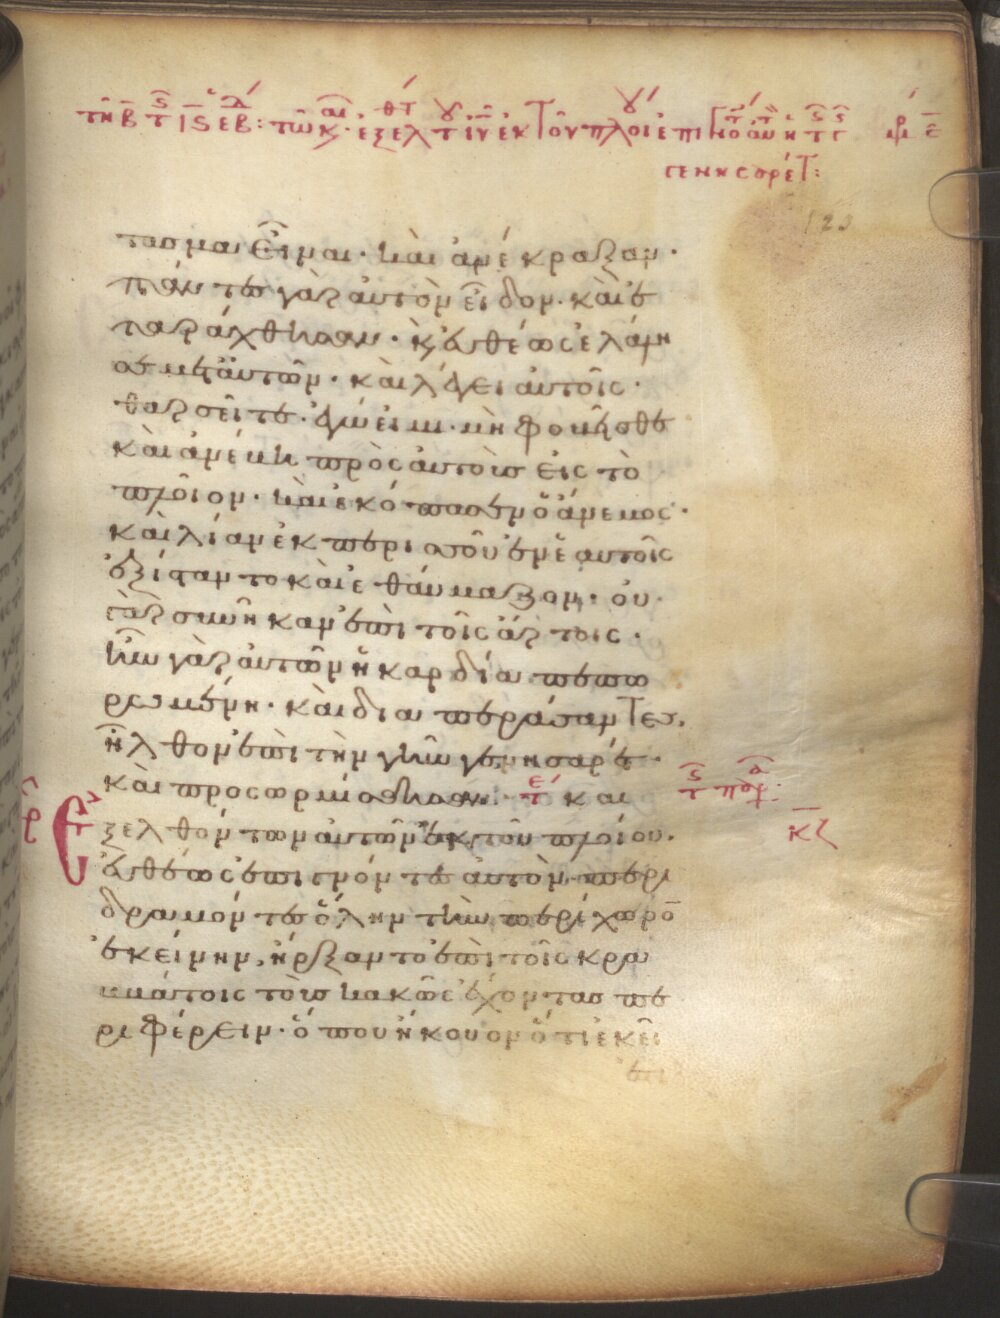 τασμα εἶναι· καὶ ἀνέκραξαν·
πάντες γὰρ αὐτὸν εἶδον· καὶ ἐ
ταράχθησαν· κ εὐθέως ἐλάλη
σε μετ αὐτῶν· καὶ λέγει αὐτοῖς·
θαρσεῖτε· ἐγώ εἰμι· μὴ φοβῆσθε
καὶ ἀνέβη πρὸς αὐτοὺς εἰς τὸ
πλοῖον· καὶ ἐκόπασεν ὁ ἄνεμος·
καὶ λίαν ἐκ περισσοῦ ἐν ἑαυτοῖς
ἐξίσταντο καὶ ἐθαύμαζον· οὐ
γὰρ συνῆκαν ἐπὶ τοῖς ἄρτοις·
ἦν γὰρ αὐτῶν ἡ καρδία πεπω
ρωμένη· καὶ διαπεράσαντες,
ἦλθον ἐπὶ τὴν γῆν γεννησαρέτ·
καὶ προσωρμίσθησαν· τε και
ξελθόντων αὐτῶν ἐκ τοῦ πλοίου·
εὐθέως ἐπιγνόντες αὐτὸν· περι
δραμόντες ὅλην τὴν περίχωρο
ἐκείνην, ἤρξαντο ἐπὶ τοῖς κρα
βάτοις τοὺς κακῶς ἔχοντας πε
ριφέρειν· ὅπου ἤκουον ὅτι ἐκεῖ